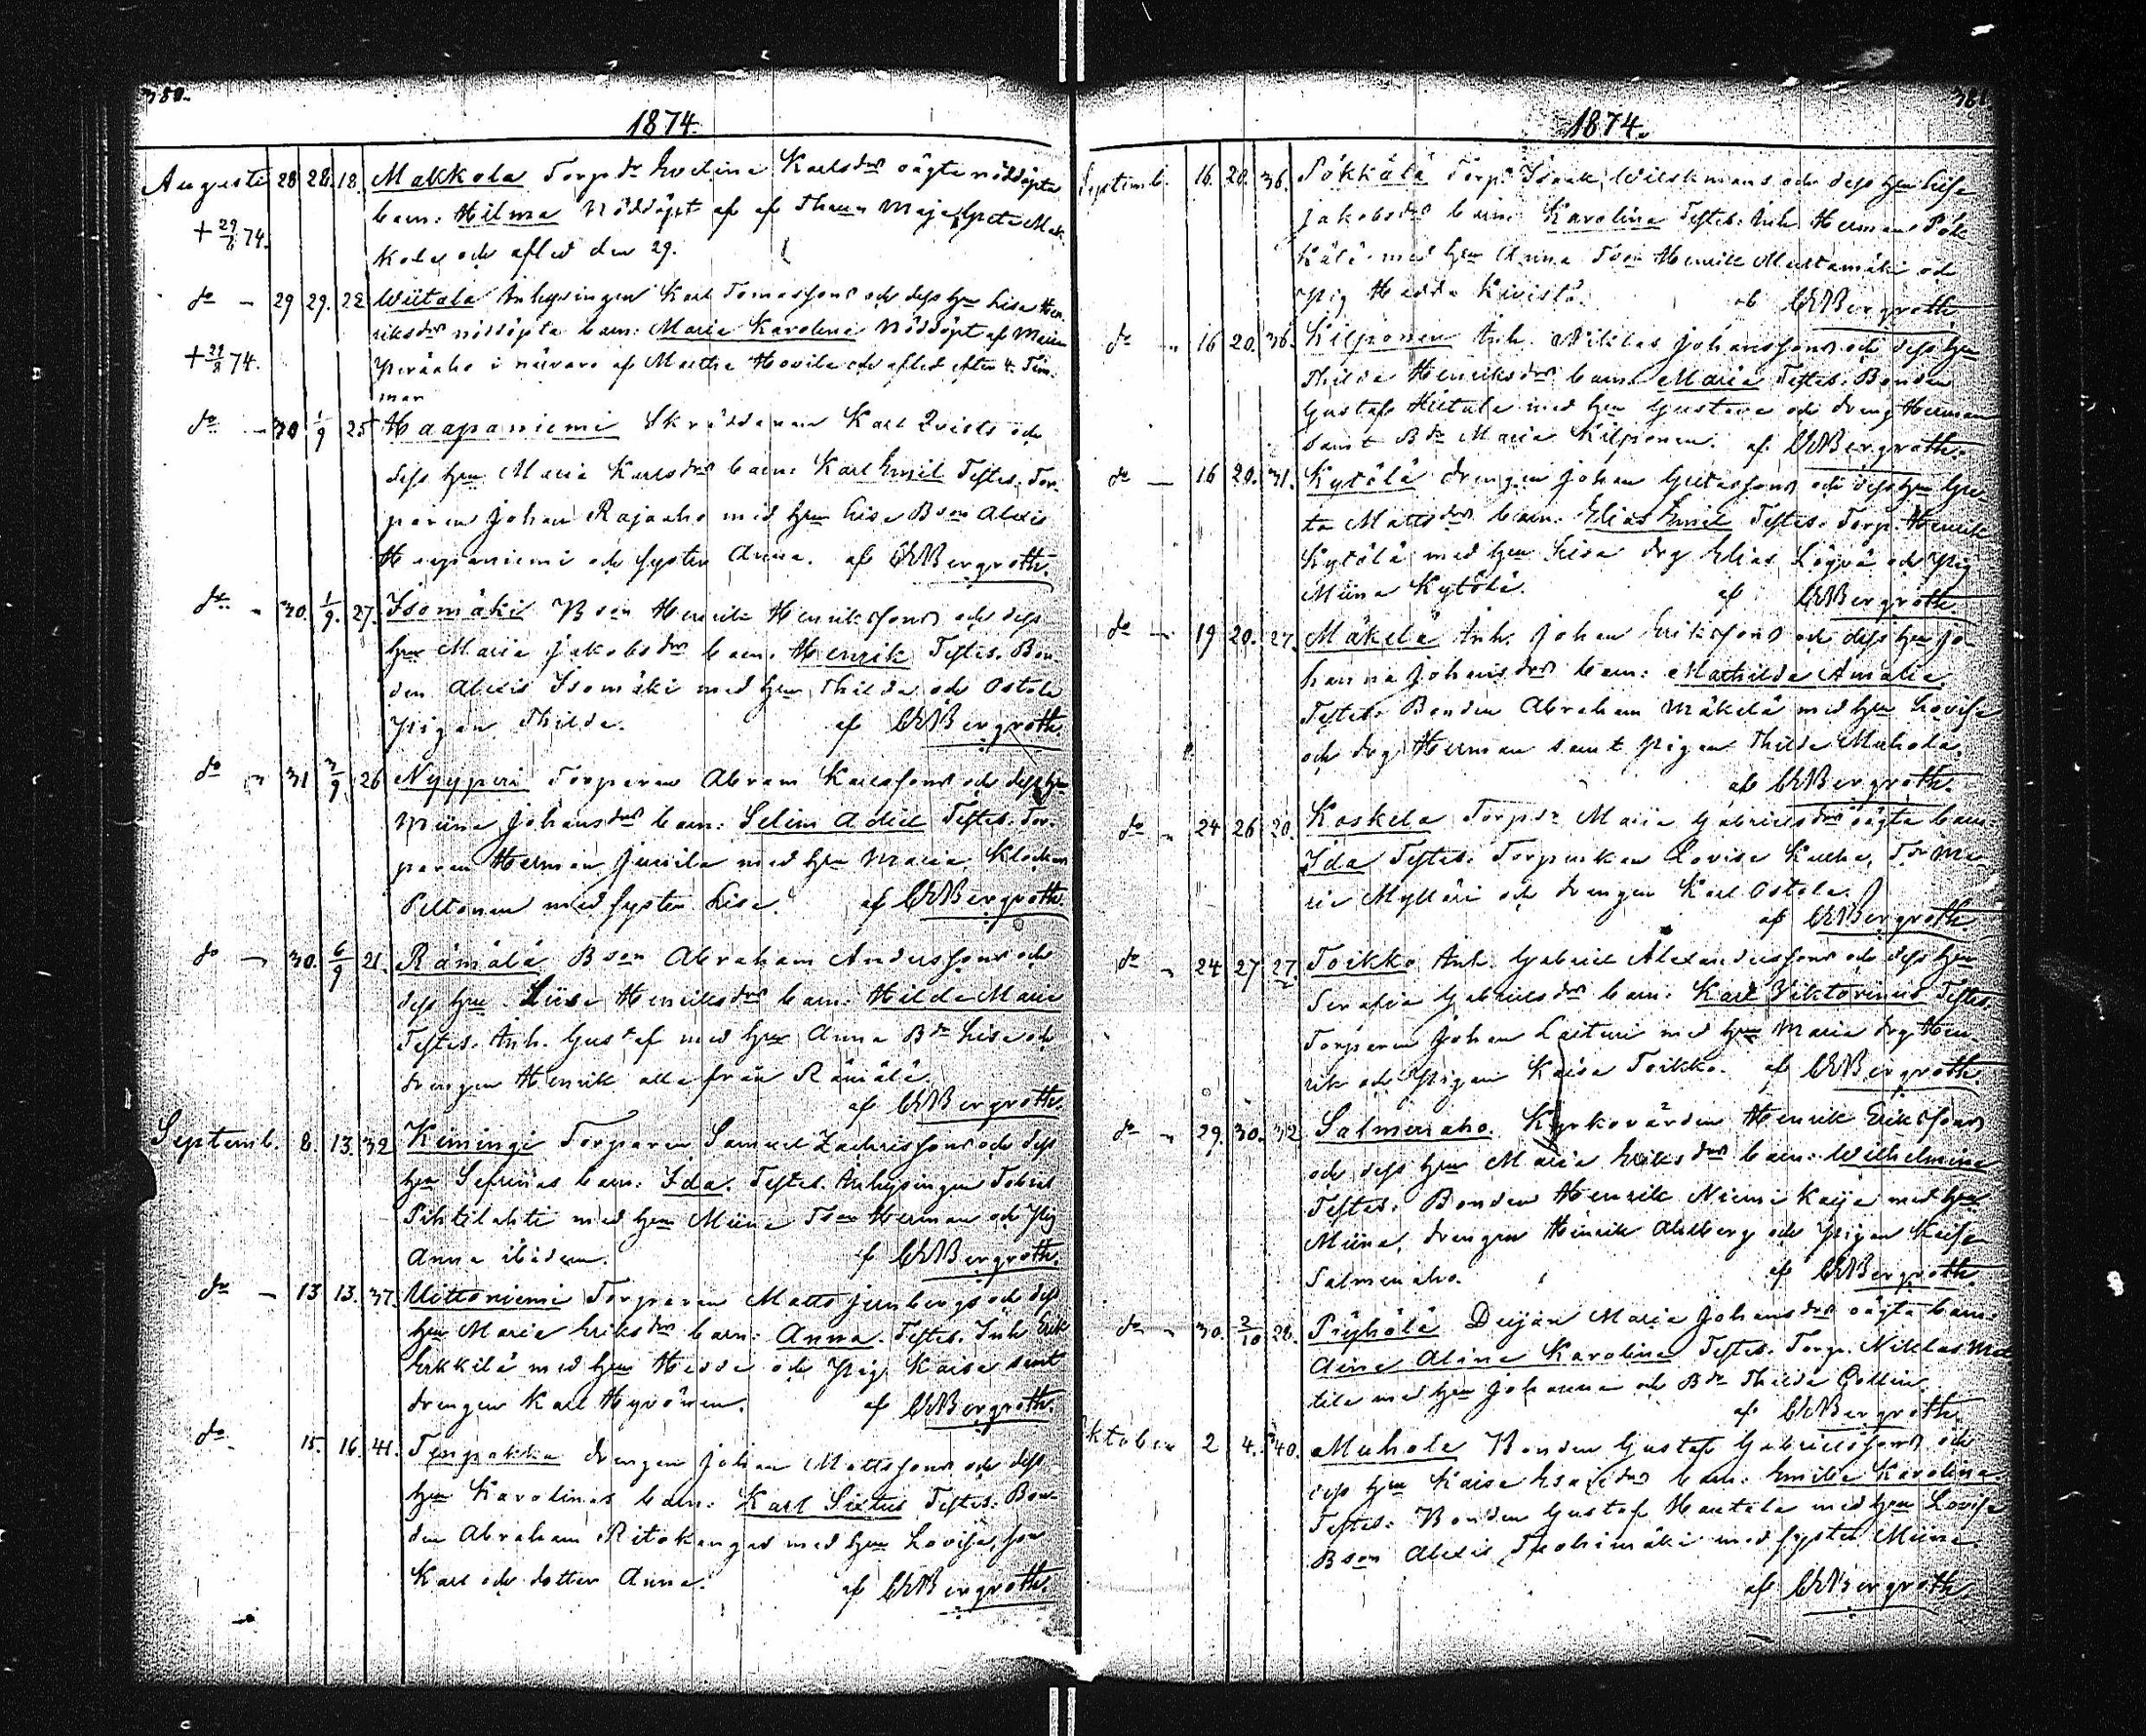 380.
1874.
Augusti 28 28. 18. Makkola Torpdr Evelina Karlsdrs oägta nöddöpta
+ 29/8 74. barn: Hilma Nöddöpt af af Maja Greta Mak-
kola och afled den 29.
do - 29 29. 22 Wiitala Inhysingen Karl Tomassons och dess hu Lisa Hen-
riksdrs nöddöpta barn: Maria Karolina Nöddöpt af Maria
+ 29/8 74. Peräaho i närvaro af Martha Hovila och afled efter 4 Tim-
mar
do - 30 1/9 25 Haapaniemi Skräddaren Karl Qvists och
dess hu Maria Karlsdrs barn: Karl Emil Testes. Tor-
paren Johan Rajaaho med hu Lisa Bson Alexis
Haapaniemi och syster Anna. af CEBergroth.
do - 30. 1/9. 27. Isomäki Bson Henrik Henrikssons och dess
hu Maria Jakobsdrs barn. Henrik Testes. Bon-
den Alexis Isomäki med hu Thilda och Ostola
Pigan Thilda. af CEBergroth.
do - 31 3/9 26 Nyyperi Torparen Abram Karlssons och dess hu
Miina Johansdrs barn: Selim Adiel Testes. Tor-
paren Herman Junila med hu Maria, Klockar
Peltonen med syster Lisa. af CEBergroth.
do - 30. 6/9 21. Rämälä Bson Abraham Anderssons och
dess hu Liisa Henriksdrs barn: Hilda Maria
Testes. Inh. Gustaf med hu Anna Bdr Lisa och
drengen Henrik alla från Rämälä.
af CEBergroth.
Septemb. 8. 13. 32 Kimingi Torparen Samuel Zachrissons och dess
hu Sefiinas barn: Ida. Testes. Inhysingen Tobias
Pihtilahti med hu Miina Tson Herman och Pig
Anna ibidem. af CEBergroth.
do - 13 13. 37. Uittoniemi Torparen Matts Jernbergs och dess
hu Maria Eriksdrs barn: Anna. Testes. Inh Erik
Erkkilä med hu Hedda och Pig. Kaisa samt
drengen Karl Hyvönen. af CEBergroth.
do 15. 16. 41. drengen Johan Mattssons och dess
hu Karolinas barn: Karl Sixtus Testes. Bon-
den Abraham Ritokangas med hu Lovisa, son
Karl och dotter Anna. af CEBergroth.
381.
1874.
Septemb. 16. 20. 36. Pökkälä Torp. Isaak Wilskmans och dess hu Lisa
Jakobsdrs barn: Karolina Testes. Inh. Herman Pök-
kälä med hu Anna Tson Henrik Mustamäki och
Pig Hedda Kivistö. af CEBergroth.
do - 16 20. 36. Kilponen Inh. Niklas Johanssons och dess hu
Thilda Henriksdrs barn. Maria Testes. Bonden
Gustaf Hietala med hu Gustava och dreng Herman
samt Bdr Maria Kilponen. af CEBergroth.
do - 16 20. 31. Kytölä drengen Johan Gustafssons och dess hu Gre-
ta Mattsdrs barn. Elias Emil Testes. Torp. Henrik
Kytölä med hu Lisa drg Elias Löyvä och Pig
Miina Kytölä. af CEBergroth.
do - 19 20. 27. Mäkelä Inh. Johan Erikssons och dess hu Jo-
hanna Johansdrs barn: Mathilda Amalia.
Testes. Bonden Abraham Mäkelä med hu Lovisa
och drg Herman samt pigan Thilda Muhola.
af CEBergroth.
do - 24 26 20. Koskela Torpdr Maria Gabrielsdrs oägta barn
Ida Testes. Torparskan Lovisa Tdr Ma-
ria Mylläri och drengen Karl Ostola.
af CEBergroth.
do - 24 27 27. Toikko Inh. Gabriel Alexanderssons och dess hu
Serafia Gabrielsdrs barn: Karl Viktorinus Testes.
Torparen Johan Laituri med hu Maria drg Hen-
rik och Pigan Kaisa Toikko. af CEBergroth.
do - 29. 30. 32 Salmenaho. Kyrkovärden Henrik Erikssons
och dess hu Maria Eriksdrs barn: Wilhelmina
Testes. Bonden Henrik Niemi Kaija med hu
Miina, drengen Henrik Ahlberg och Pigan Kaisa
Salmenaho. af CEBergroth.
do - 30. 2/10 28. Pöyhölä Dejan Maria Johansdrs oägta barn:
Aina Alina Karolina Testes. Torp. Niklas Mat-
tila med hu Johanna och Bdr Thilda Gollin.
af CEBergroth.
Oktober 2 4. 40. Muhola Bonden Gustaf Gabrielssons och
dess hu Kaisa Esaiedrs barn: Emilia Karolina
Testes. Bonden Gustaf Hautala med hu Lovisa
Bson Alexis Tuohimäki med syster Miina.
af CEBergroth.